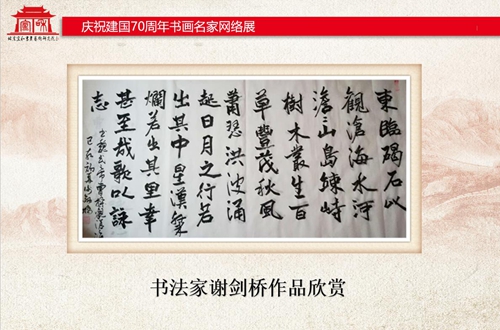 庆祝建国70周年书画名家网络展
東臨碣石以
觀滄海水河
澹〻山島竦峙
樹木叢生百
草豐茂秋風
蕭瑟洪波涌
起日月之行若
出其中星漢粲
爛若出其里幸
甚至哉歌以詠
志
书法家谢剑桥作品欣赏